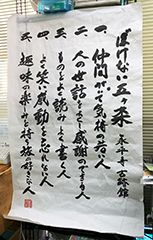 ぼけない五ヶ条
永平寺 古祥館
一、仲間がいて気持の若い人
二、人の世話をよくし感謝のできる人
三、ものをよく読みよく書く人
四、よく笑い感動を忘れない人
五、趣味の楽しみを持ち旅好きな人